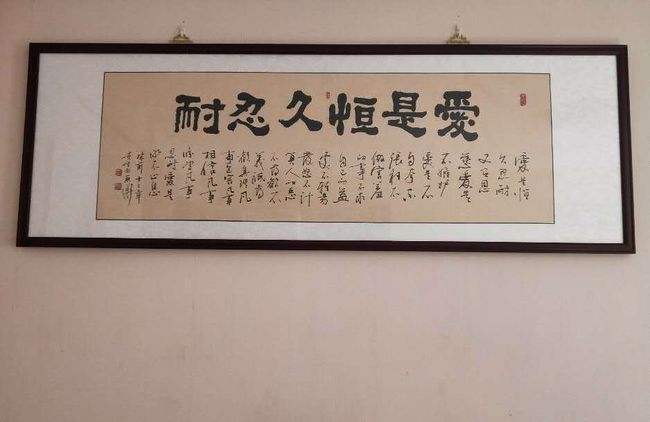 愛是恒久忍耐
愛是恒
久忍耐
又有恩
慈愛是
不嫉妒
愛是不
自夸不
張狂不
做害羞
的事不求
自己的益
處不輕易
發怒不計
算人的惡
不喜歡不
義喜
歡真理凡
事包容凡事
相信凡事
盼望凡事
忍耐愛是
永不止息